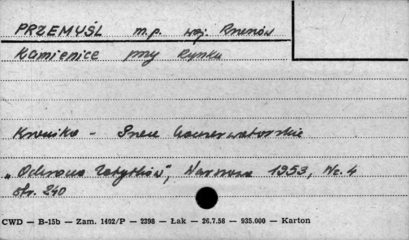 PRZEMYŚL m.p. woj. Rzeszów
Kamienice przy Rynku
Kronika - Prace konserwatorskie
"Ochrona Zabytków", Warszawa 1953, Nr. 4
str. 240
CWD — B-15b — Zam. 1402/P — 2398 — Łak — 26.7.58 — 935.000 — Karton